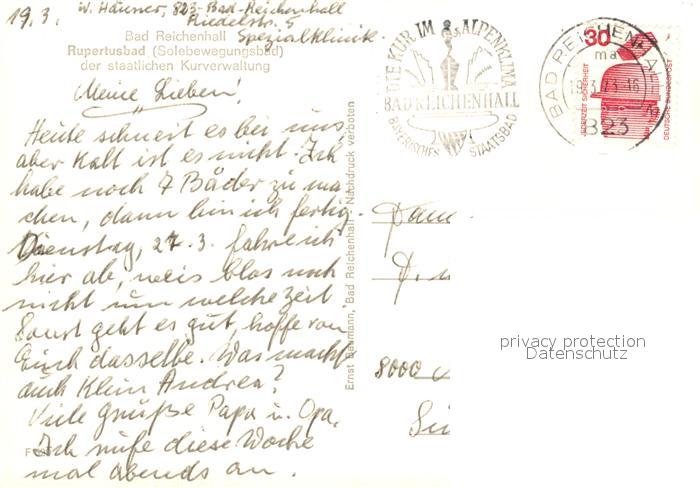 19.3. W. Häusner, 823-Bad-Reichenhall
Riedelstr. 5
Spezialklinik.
Bad Reichenhall
Rupertusbad (Solebewegungsbad)
der staatlichen Kurverwaltung
Meine Lieben!
Heute schneit es bei uns
aber Kalt ist es nicht. Ich
habe noch 7 Bäder zu ma
chen, dann bin ich fertig.
Dienstag, 27.3. fahre ich
hier ab, weis blos noch
nicht um welche Zeit.
Sonst geht es gut, hoffe von
Euch dasselbe. Was macht
auch Klein Andrea?
Viele Grüße Papa u. Opa.
Ich rufe diese Woche
mal abends an.
Ernst Baumann, Bad Reichenhall - Nachdruck verboten
DIE KUR IM ALPENKLIMA
BAD REICHENHALL
BAYERISCHES STAATSBAD
BAD REICHENHALL
ma
19.3.73-16
823
30
JEDERZEIT SICHERHEIT
DEUTSCHE BUNDESPOST
Fam
8000
privacy protection
Datenschutz